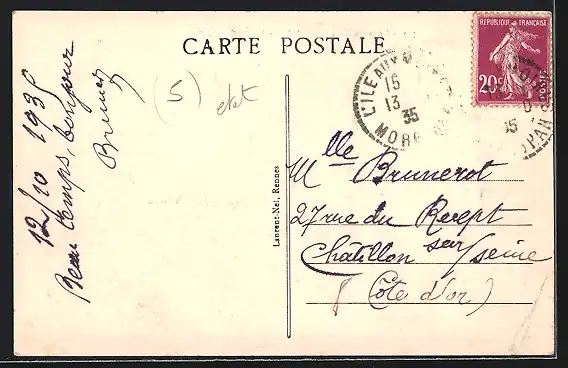 CARTE POSTALE
12/10 1935
Beau temps, bonjour
(5) etat
Laurent-Nel, Rennes
REPUBLIQUE FRANÇAISE
20c
POSTES
L'ILE AUX M
15
13
35
MOR
35
Mlle Brunerot
27 rue du Recept
Châtillon sur/seine
(Côte d'or)